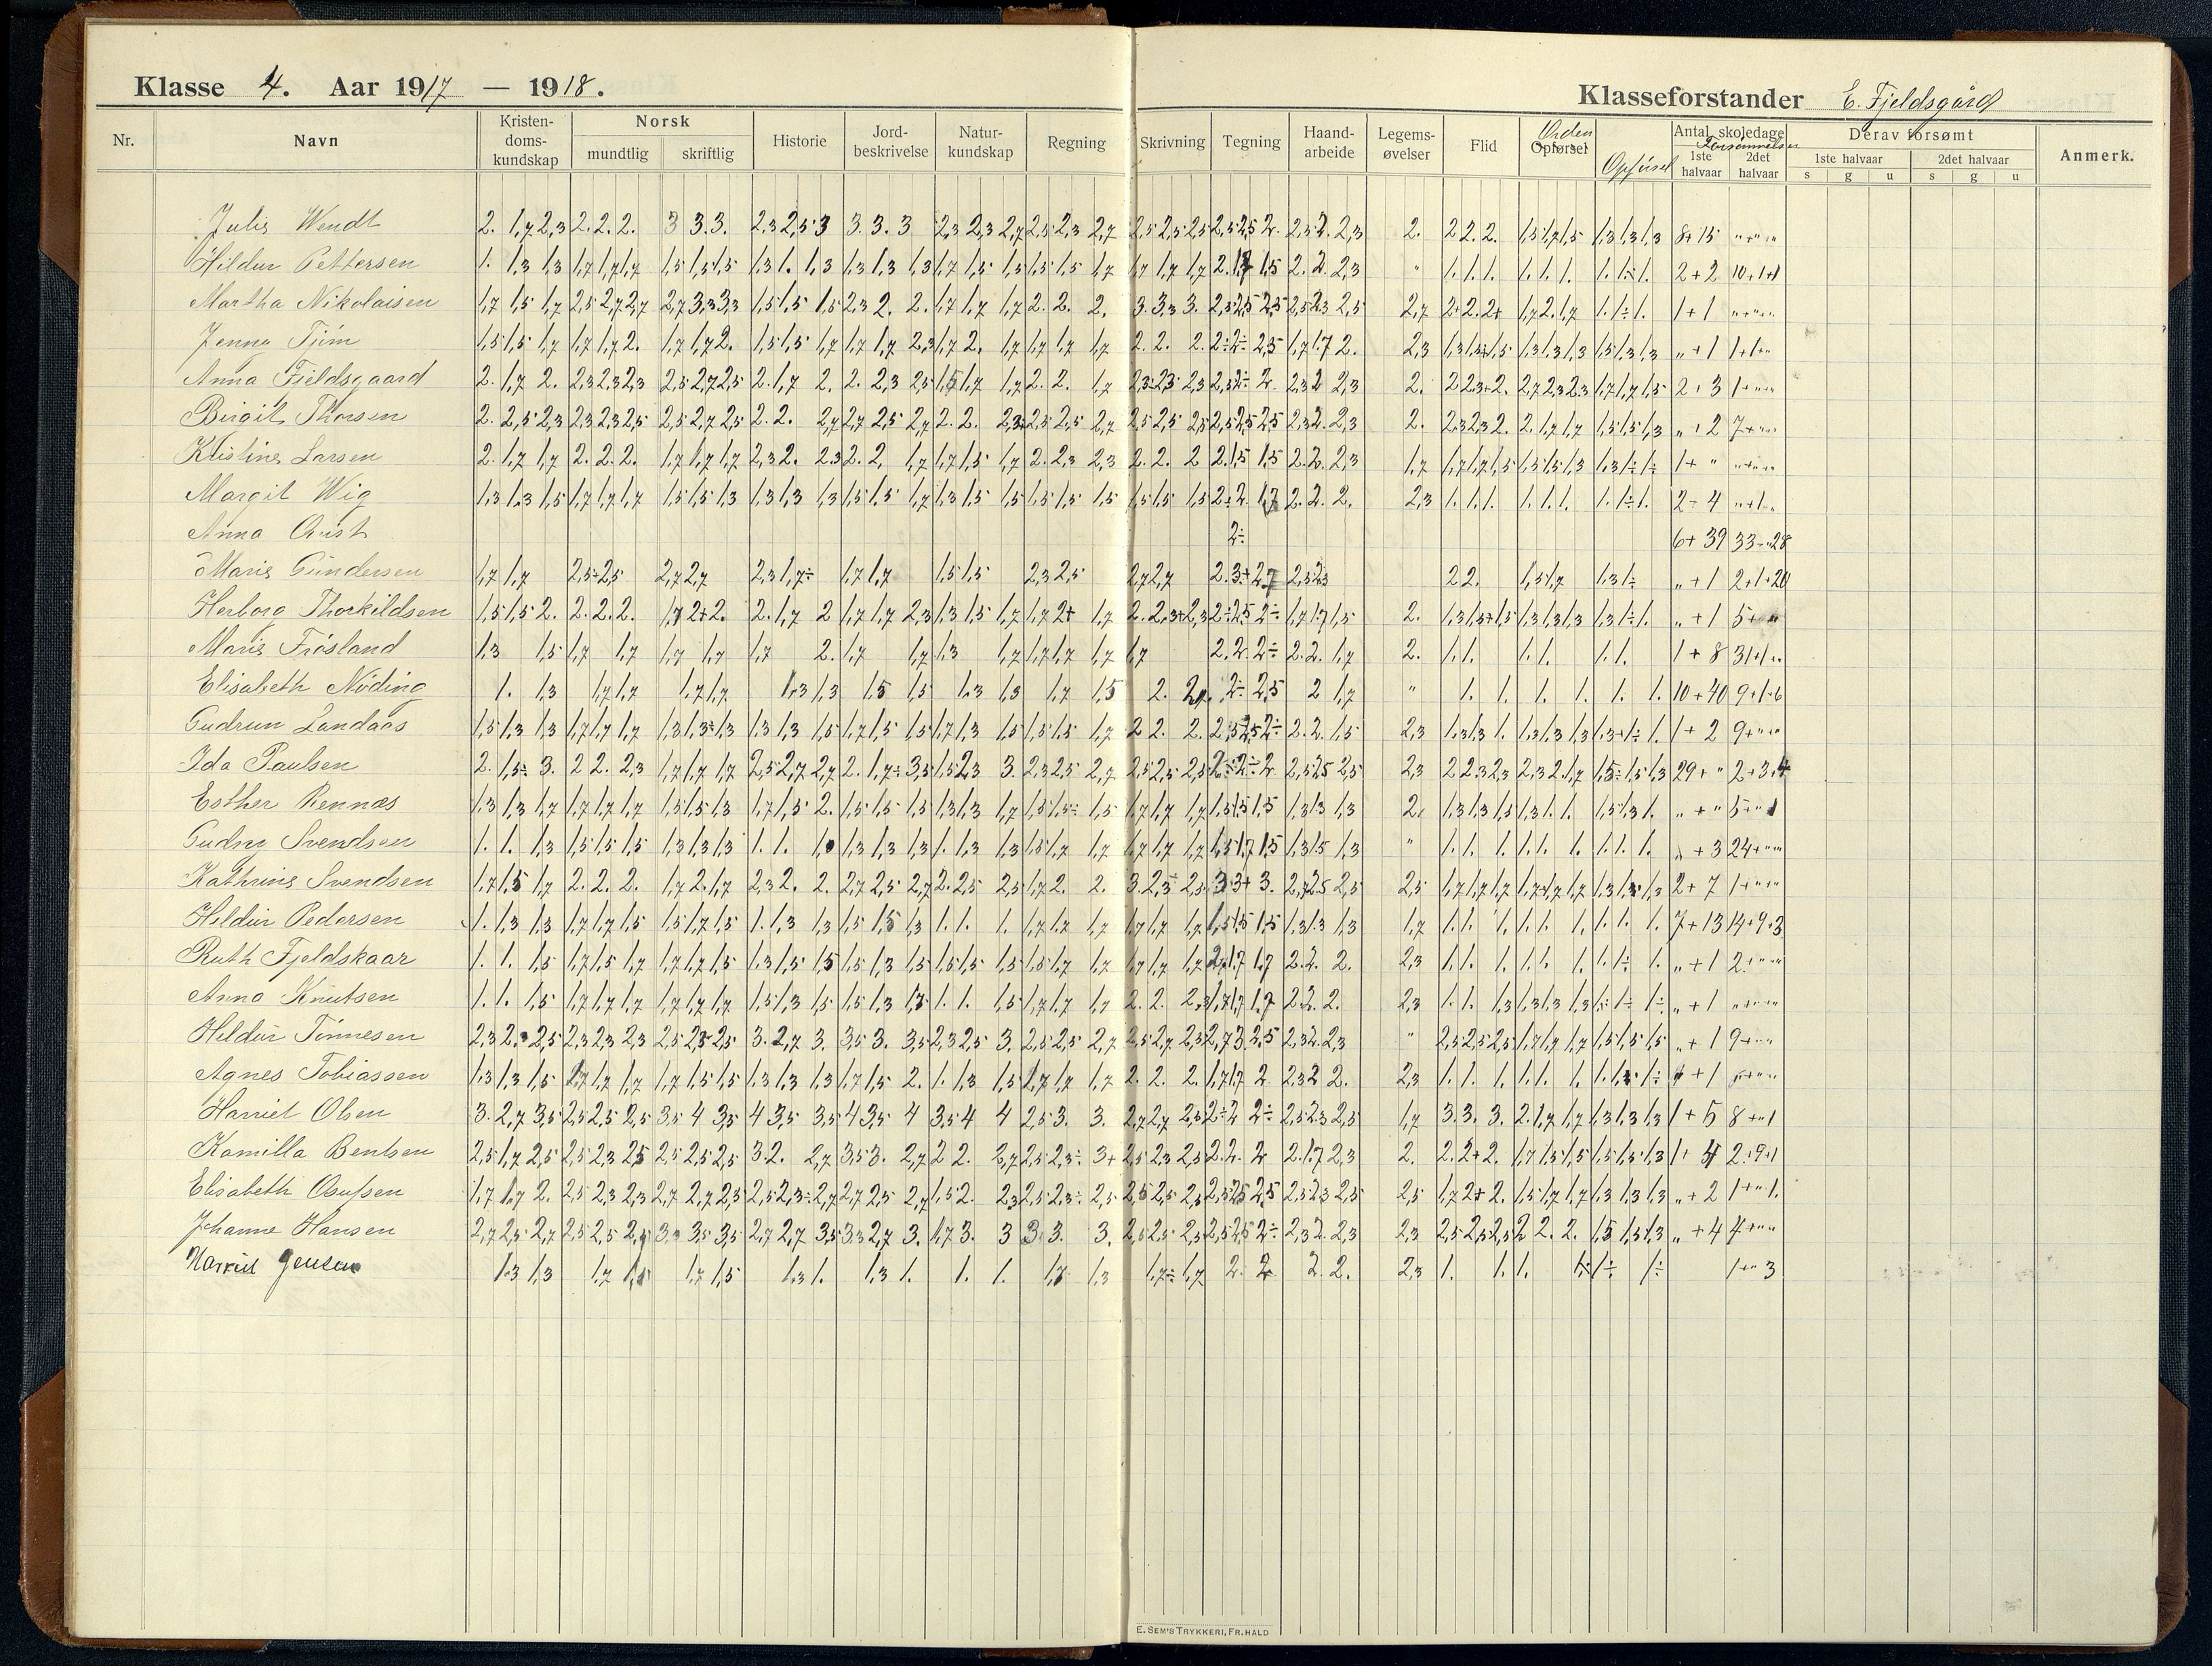 Klasse 4. Aar 1917 — 1918.
Klasseforstander E. Fjeldsgård
Nr. Navn Kristendoms-kundskap Norsk mundtlig skriftlig Historie Jord-beskrivelse Natur-kundskap Regning Skrivning Tegning Haand-arbeide Legems-øvelser Flid Orden Opførsel Opførsel Antal skoledage Forsømmelser 1ste halvaar 2det halvaar Derav forsømt 1ste halvaar s g u 2det halvaar s g u Anmerk.
Julie Wendt 2. 1,7 2,3 2. 2. 2. 3 3. 3. 2,3 2,5 3 3. 3. 3 2,3 2,3 2,7 2,5 2,3 2,7 2,5 2,5 2,5 2,5 2,5 2. 2,5 2. 2,3 2. 2 2. 2. 1,5 1,7 1,5 1,3 1,3 1,3 8+15
Hildur Pettersen 1. 1,3 1,3 1,7 1,7 1,7 1,5 1,5 1,5 1,3 1. 1,3 1,3 1,3 1,3 1,7 1,5 1,5 1,5 1,5 1,7 1,7 1,7 1,7 2. 1,7 1,5 2. 2. 2,3 " 1. 1. 1. 1. 1. 1. 1. 1÷ 1. 2+2 10+1+1
Martha Nikolaisen 1,7 1,5 1,7 2,5 2,7 2,7 2,7 3,3 3,3 1,5 1,5 1,5 2,3 2. 2. 1,7 1,7 1,7 2. 2. 2. 3. 3,3 3. 2,5 2,5 2,5 2,5 2,3 2,5 2,7 2+ 2. 2+ 1,7 2. 1,7 1. 1÷ 1. 1+1
Jenny Tjim 1,5 1,5 1,7 1,7 1,7 2. 1,7 1,7 2. 1,5 1,5 1,7 1,7 1,7 2,3 1,7 2. 1,7 1,7 1,7 1,7 2. 2. 2. 2÷ 2÷ 2,5 1,7 1,7 2. 2,3 1,3 1,3+ 1,5 1,3 1,3 1,3 1,5 1,3 1,3 "+1 1+1+"
Anna Fjeldsgaard 2. 1,7 2. 2,3 2,3 2,3 2,5 2,7 2,5 2. 1,7 2. 2. 2,3 2,5 1,5 1,7 1,7 2. 2. 1,7 2,3÷ 2,3 2,3 2,5 2÷ 2. 2,3 2 2,3 2. 2 2,3+ 2. 2,7 2,3 2,3 1,7 1,7 1,5 2+3
Birgit Thorsen 2. 2,5 2,3 2,3 2,3 2,5 2,5 2,7 2,5 2. 2. 2,7 2,7 2,5 2,7 2. 2. 2,3 2,5 2,5 2,7 2,5 2,5 2,5 2,5 2,5 2,5 2,3 2. 2,3 2. 2,3 2,3 2. 2. 1,7 1,7 1,5 1,5 1,3 "+2
Kristine Larsen 2. 1,7 1,7 2. 2. 2. 1,7 1,7 1,7 2,3 2. 2,3 2. 2. 1,7 1,7 1,5 1,7 2. 2,3 2,3 2. 2. 2 2. 1,5 1,5 2. 2. 2,3 1,7 1,7 1,7 1,5 1,5 1,5 1,3 1,3 1÷ 1÷ 1+"
Margit Wig 1,3 1,3 1,5 1,7 1,7 1,7 1,5 1,5 1,3 1,3 1,3 1,3 1,5 1,5 1,7 1,3 1,5 1,5 1,5 1,5 1,5 1,5 1,5 1,5 2÷ 2. 1,7 2. 2. 2. 2,3 1. 1. 1. 1. 1. 1. 1. 1÷ 1. 2÷4
Anna Qvist 2÷ 6+39 33-"28
Marie Gundersen 1,7 1,7 2,5÷ 2,5 2,7 2,7 2,3 1,7÷ 1,7 1,7 1,5 1,5 2,3 2,5 2,7 2,7 2. 3+ 2,7 2,5 2,3 2 2. 1,5 1,7 1,3 1÷ "+1 2+1+20
Herborg Thorkildsen 1,5 1,5 2. 2. 2. 2. 1,7 2+ 2. 2. 1,7 2 1,7 1,7 2,3 1,3 1,5 1,7 1,7 2+ 1,7 2. 2,3+ 2,3 2÷ 2,5 2÷ 1,7 1,7 1,5 2. 1,3 1,3+ 1,5 1,3 1,3 1,3 1,3 1÷ 1. "+1
Marie Frøsland 1,3 1,5 1,7 1,7 1,7 1,7 1,7 2. 1,7 1,7 1,3 1,7 1,7 1,7 1,7 1,7 2. 2. 2÷ 2. 2. 1,7 2. 1. 1. 1. 1. 1. 1. 1+8
Elisabeth Nøding 1. 1,3 1,7 1,7 1,7 1,7 1,3 1,3 1,5 1,5 1,3 1,3 1,7 1,5 2. 2÷ 2,5 2 1,7 " 1. 1. 1. 1. 1. 1. 10+40 9+1+6
Gudrun Landaas 1,5 1,3 1,3 1,7 1,7 1,7 1,3 1,3÷ 1,3 1,3 1,3 1,5 1,7 1,5 1,5 1,7 1,3 1,5 1,5 1,5 1,7 2 2. 2. 2,5 2,5 2÷ 2. 2. 1,5 2,3 1,3 1,3 1. 1,3 1,3 1,3 1,3+ 1÷ 1. 1+2
Ida Paulsen 2. 1,5÷ 3. 2 2. 2,3 1,7 1,7 1,7 2,5 2,7 2,7 2. 1,7÷ 3,5 1,5 2,3 3. 2,3 2,5 2,7 2,5 2,5 2,5 2÷ 2÷ 2 2,5 2,5 2,5 2,3 2 2. 2,3 2,3 2. 1,7 1,5÷ 1,5 1,3 29+" 2+3+4
Esther Rennæs 1,3 1,3 1,7 1,7 1,7 1,7 1,5 1,5 1,3 1,7 1,5 2. 1,5 1,5 1,5 1,3 1,3 1,7 1,5 1,5÷ 1,5 1,7 1,7 1,7 1,5 1,5 1,5 1,3 1,3 1,3 2. 1,3 1,3 1,5 1,3 1. 1. 1,5 1,3 1. "+" 5+"1
Gudny Svendsen 1. 1. 1,3 1,5 1,5 1,5 1,3 1,3 1,3 1. 1. 1,3 1,3 1,3 1. 1,3 1,3 1,5 1,7 1,7 1,7 1,7 1,7 1,5 1,7 1,5 1,3 1,5 1,3 " 1. 1. 1. 1. 1. 1. 1. 1. 1. "+3
Kathrine Svendsen 1,7 1,5 1,7 2. 2. 2. 1,7 2. 1,7 2,3 2. 2. 2,7 2,5 2,7 2. 2,5 2,5 1,7 2. 2. 3. 2,3÷ 2,3 3. 3+ 3. 2,7 2,5 2,5 2,5 1,7 1,7 1,7 1,7+ 1,7 1,7 1,3 1,3 2+7
Hildur Pedersen 1. 1,3 1,3 1,7 1,7 1,5 1,5 1,7 1,5 1. 1,3 1,3 1,5 1,5 1,3 1. 1. 1. 1,7 1,7 1,7 1,7 1,7 1,7 1,5 1,5 1,5 1,3 1,3 1,3 1,7 1. 1. 1. 1. 1. 1. 1. 1. 1. 7+13 14+9+3
Ruth Fjeldskaar 1. 1. 1,5 1,7 1,5 1,7 1,7 1,7 1,5 1,3 1,5 1,5 1,5 1,3 1,5 1,5 1,5 1,5 1,5 1,7 1,7 1,7 1,7 1,7 2. 1,7 1,7 2. 2. 2. 2,3 1. 1. 1. 1. 1. 1. 1. 1÷ 1. "+1
Anna Knutsen 1. 1. 1,5 1,7 1,7 1,7 1,7 1,7 1,7 1,5 1,3 1,5 1,5 1,3 1,3 1. 1. 1,5 1,7 1,7 1,7 2. 2. 2,3 1,7 1,7 1,7 2. 2. 2. 2,3 1. 1. 1,3 1,3 1,3 1,3 1÷ 1÷ 1÷ "+1
Hildur Tønnesen 2,3 2. 2,5 2,3 2,3 2,3 2,5 2,5 2,5 3. 2,7 3. 3,5 3. 3,5 2,3 2,5 3. 2,5 2,5 2,7 2,5 2,7 2,5 2,7 3 2,5 2,3 2. 2,3 " 2,5 2,5 2,5 1,7 1,7 1,7 1,5 1,5 1,5 "+1
Agnes Tobiassen 1,3 1,3 1,5 1,7 1,7 1,7 1,7 1,5 1,5 1,3 1,3 1,3 1,7 1,5 2. 1. 1,3 1,5 1,7 1,7 1,7 2. 2. 2. 1,7 1,7 2 2,3 2 2. 2,3 1. 1. 1. 1. 1. 1. 1. 1÷ +1
Harriet Olsen 3. 2,7 3,5 2,5 2,5 2,5 3,5 4 3,5 4 3,5 3,5 4 3,5 4 3,5 4 4 2,5 3. 3. 2,7 2,7 2,5 2÷ 2 2÷ 2,5 2,3 2,5 1,7 3. 3. 3. 2. 1,7 1,7 1,3 1,3 1,3 1+5 8+"1
Kamilla Bentsen 2,5 1,7 2,5 2,5 2,3 2,5 2,5 2,5 2,5 3. 2. 2,7 3,5 3. 2,7 2 2. 2,7 2,5 2,3÷ 3+ 2,5 2,3 2,5 2. 2. 2 2. 1,7 2,3 2. 2. 2+ 2. 1,7 1,5 1,5 1,5 1,5 1,3 1+4 2+9+1
Elisabeth Osufsen 1,7 1,7 2. 2,5 2,3 2,3 2,7 2,7 2,5 2,5 2,3÷ 2,7 2,7 2,5 2,7 1,5 2. 2,3 2,5 2,3÷ 2,5 2,5 2,5 2,5 2,5 2,5 2,5 2,5 2,3 2,5 2,5 1,7 2+ 2. 1,5 1,7 1,7 1,3 1,3 1,3 "+2 1+"1.
Johanne Hansen 2,7 2,5 2,7 2,5 2,5 3,5 3,5 2,7 2,7 3,5 3,3 2,7 3. 1,7 3. 3 3. 3. 3. 2,5 2,5 2,5 2,5 2,5 2÷ 2,3 2. 2,3 2,3 2,5 2,5 2,5 2 2. 2. 1,5 1,5 1,3 "+4
Harriet Jensen 1,3 1,3 1,7 1,7 1,5 1,3 1. 1,3 1. 1. 1. 1,7 1,3 1,7÷ 1,7 2. 2 2. 2. 2,3 1. 1. 1. 1÷ 1÷ 1+" 3
E. SEM'S TRYKKERI, FR.HALD